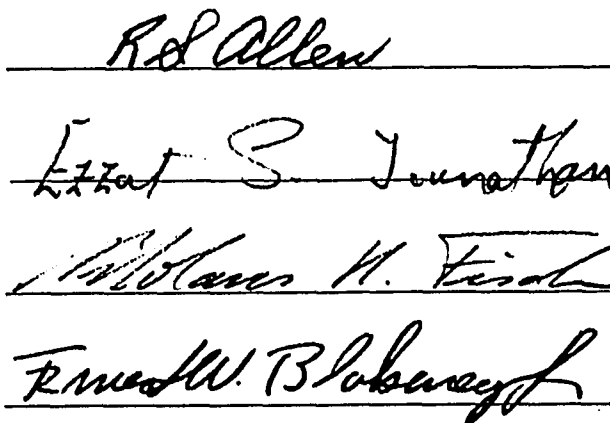 R S Allen
Ezzat S. Younathan
H. Fisch
Ernest W. Blakeney Jr